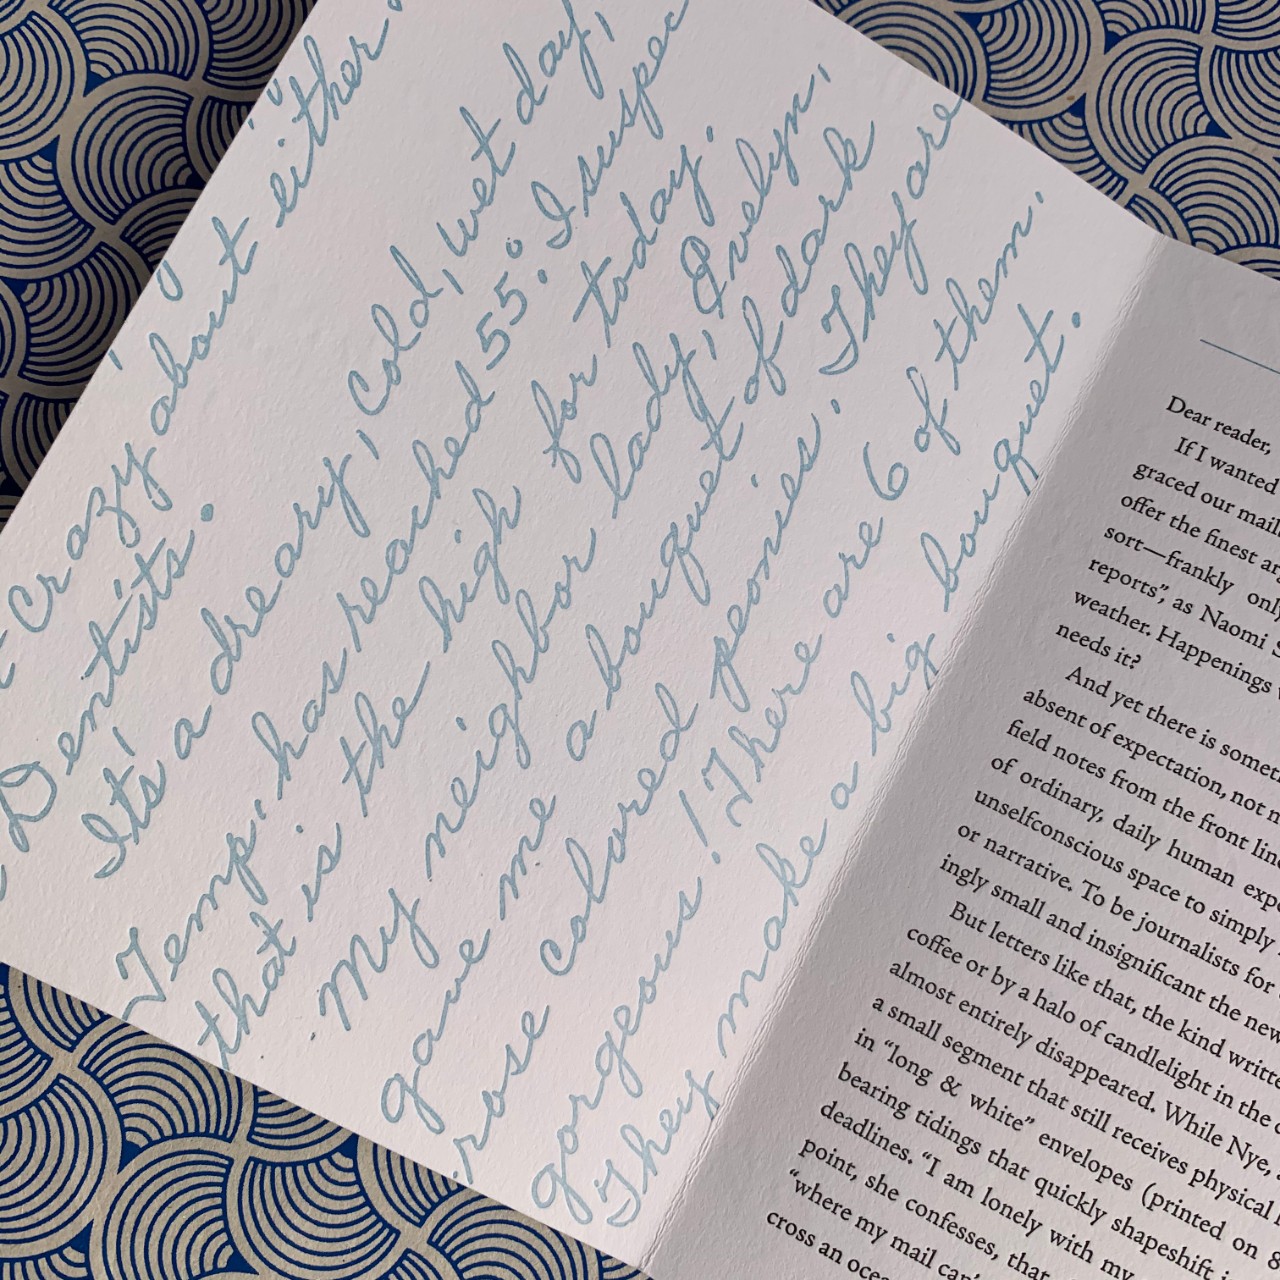 crazy about either
Dentists.
It's a dreary, cold, wet day,
Temp. has reached 55°. I suspec
that is the high for today.
My neighbor lady, Evelyn,
gave me a bouquet of dark
rose colored peonies. They are
gorgeous! There are 6 of them.
They make a big bouquet.
Dear reader,
If I wanted
graced our mail
offer the finest
sort—frankly only
reports", as Naomi S
weather. Happenings
needs it?
And yet there is somet
absent of expectation, not
field notes from the front lin
of ordinary, daily human exp
unselfconscious space to simply
or narrative. To be journalists for
ingly small and insignificant the new
But letters like that, the kind writte
coffee or by a halo of candlelight in the
almost entirely disappeared. While Nye,
a small segment that still receives physical
in "long & white" envelopes (printed on 8
bearing tidings that quickly shapeshift
deadlines. "I am lonely with my
point, she confesses, that
"where my mail can'
cross an ocea